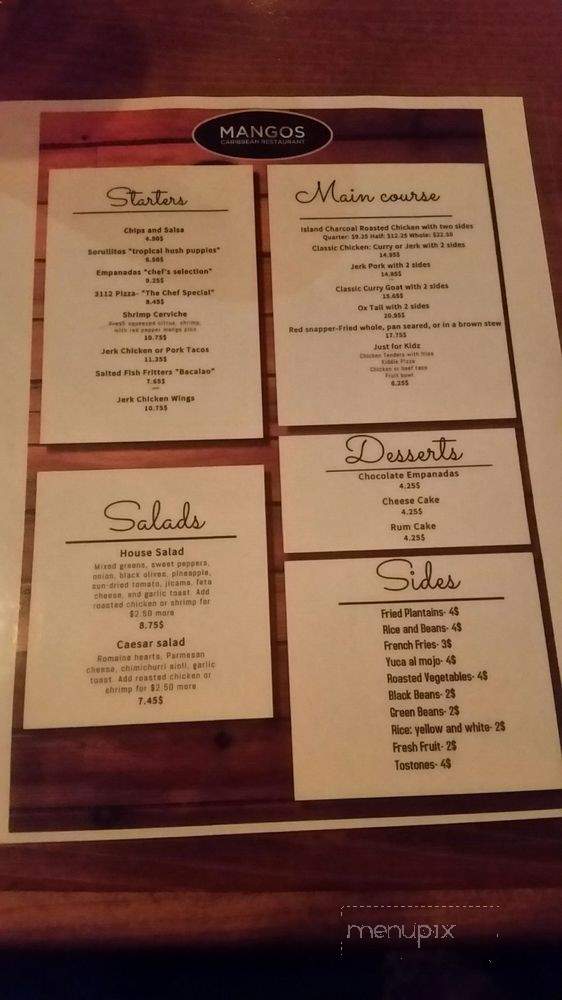 MANGOS
CARIBBEAN RESTAURANT
Starters
Chips and Salsa
Sorullitos "tropical hush puppies"
Empanadas "chef's selection"
9.25$
3112 Pizza- "The Chef Special"
8.45$
Shrimp Cerviche
Fresh squeezed citrus, shrimp,
with red pepper mango pico
10.75$
Jerk Chicken or Pork Tacos
11.35$
Salted Fish Fritters "Bacalao"
7.65$
Jerk Chicken Wings
10.75$
Main course
Island Charcoal Roasted Chicken with two sides
Quarter: $9.25 Half: $12.25 Whole: $22.50
Classic Chicken: Curry or Jerk with 2 sides
14.95$
Jerk Pork with 2 sides
14.95$
Classic Curry Goat with 2 sides
15.65$
Ox Tail with 2 sides
20.95$
Red snapper-Fried whole, pan seared, or in a brown stew
17.75$
Just for Kidz
Chicken Tenders with fries
Kiddie Pizza
Chicken or beef taco
Fruit bowl
6.25$
Desserts
Chocolate Empanadas
4.25$
Cheese Cake
4.25$
Rum Cake
4.25$
Salads
House Salad
Mixed greens, sweet peppers,
onion, black olives, pineapple,
sun-dried tomato, jicama, feta
cheese, and garlic toast. Add
roasted chicken or shrimp for
$2.50 more
8.75$
Caesar salad
Romaine hearts, Parmesan
cheese, chimichurri aioli, garlic
toast. Add roasted chicken or
shrimp for $2.50 more
7.45$
Sides
Fried Plantains- 4$
Rice and Beans- 4$
French Fries- 3$
Yuca al mojo- 4$
Roasted Vegetables- 4$
Black Beans- 2$
Green Beans- 2$
Rice: yellow and white- 2$
Fresh Fruit- 2$
Tostones- 4$
menupix